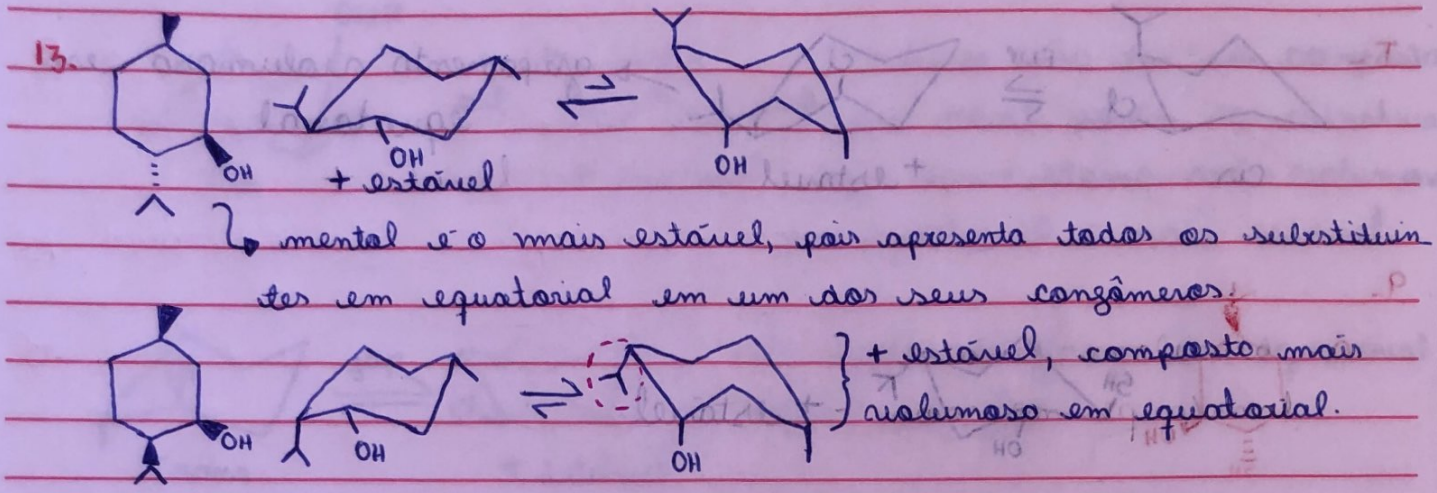 13.
OH
OH
+ estável
OH
mentol é o mais estável, pois apresenta todos os substituin
tes em equatorial em um dos seus confâmeros.
OH
OH
OH
+ estável, composto mais
volumoso em equatorial.